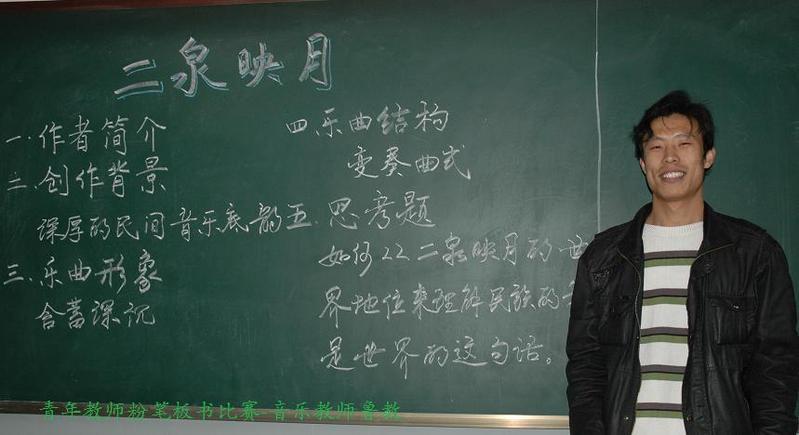 二泉映月
一.作者简介
二.创作背景
深厚的民间音乐底韵
三.乐曲形象
含蓄深沉
四.乐曲结构
变奏曲式
五.思考题
如何以二泉映月的世
界地位来理解民族的
是世界的这句话。
青年教师粉笔板书比赛 音乐教师鲁教